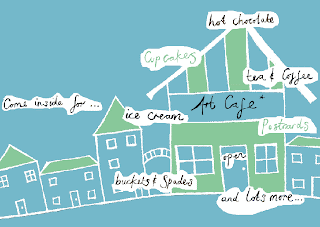 hot chocolate
Cupcakes
tea & Coffee
Come inside for...
Art Cafe
ice cream
Postcards
open
buckets & Spades
and lots more...